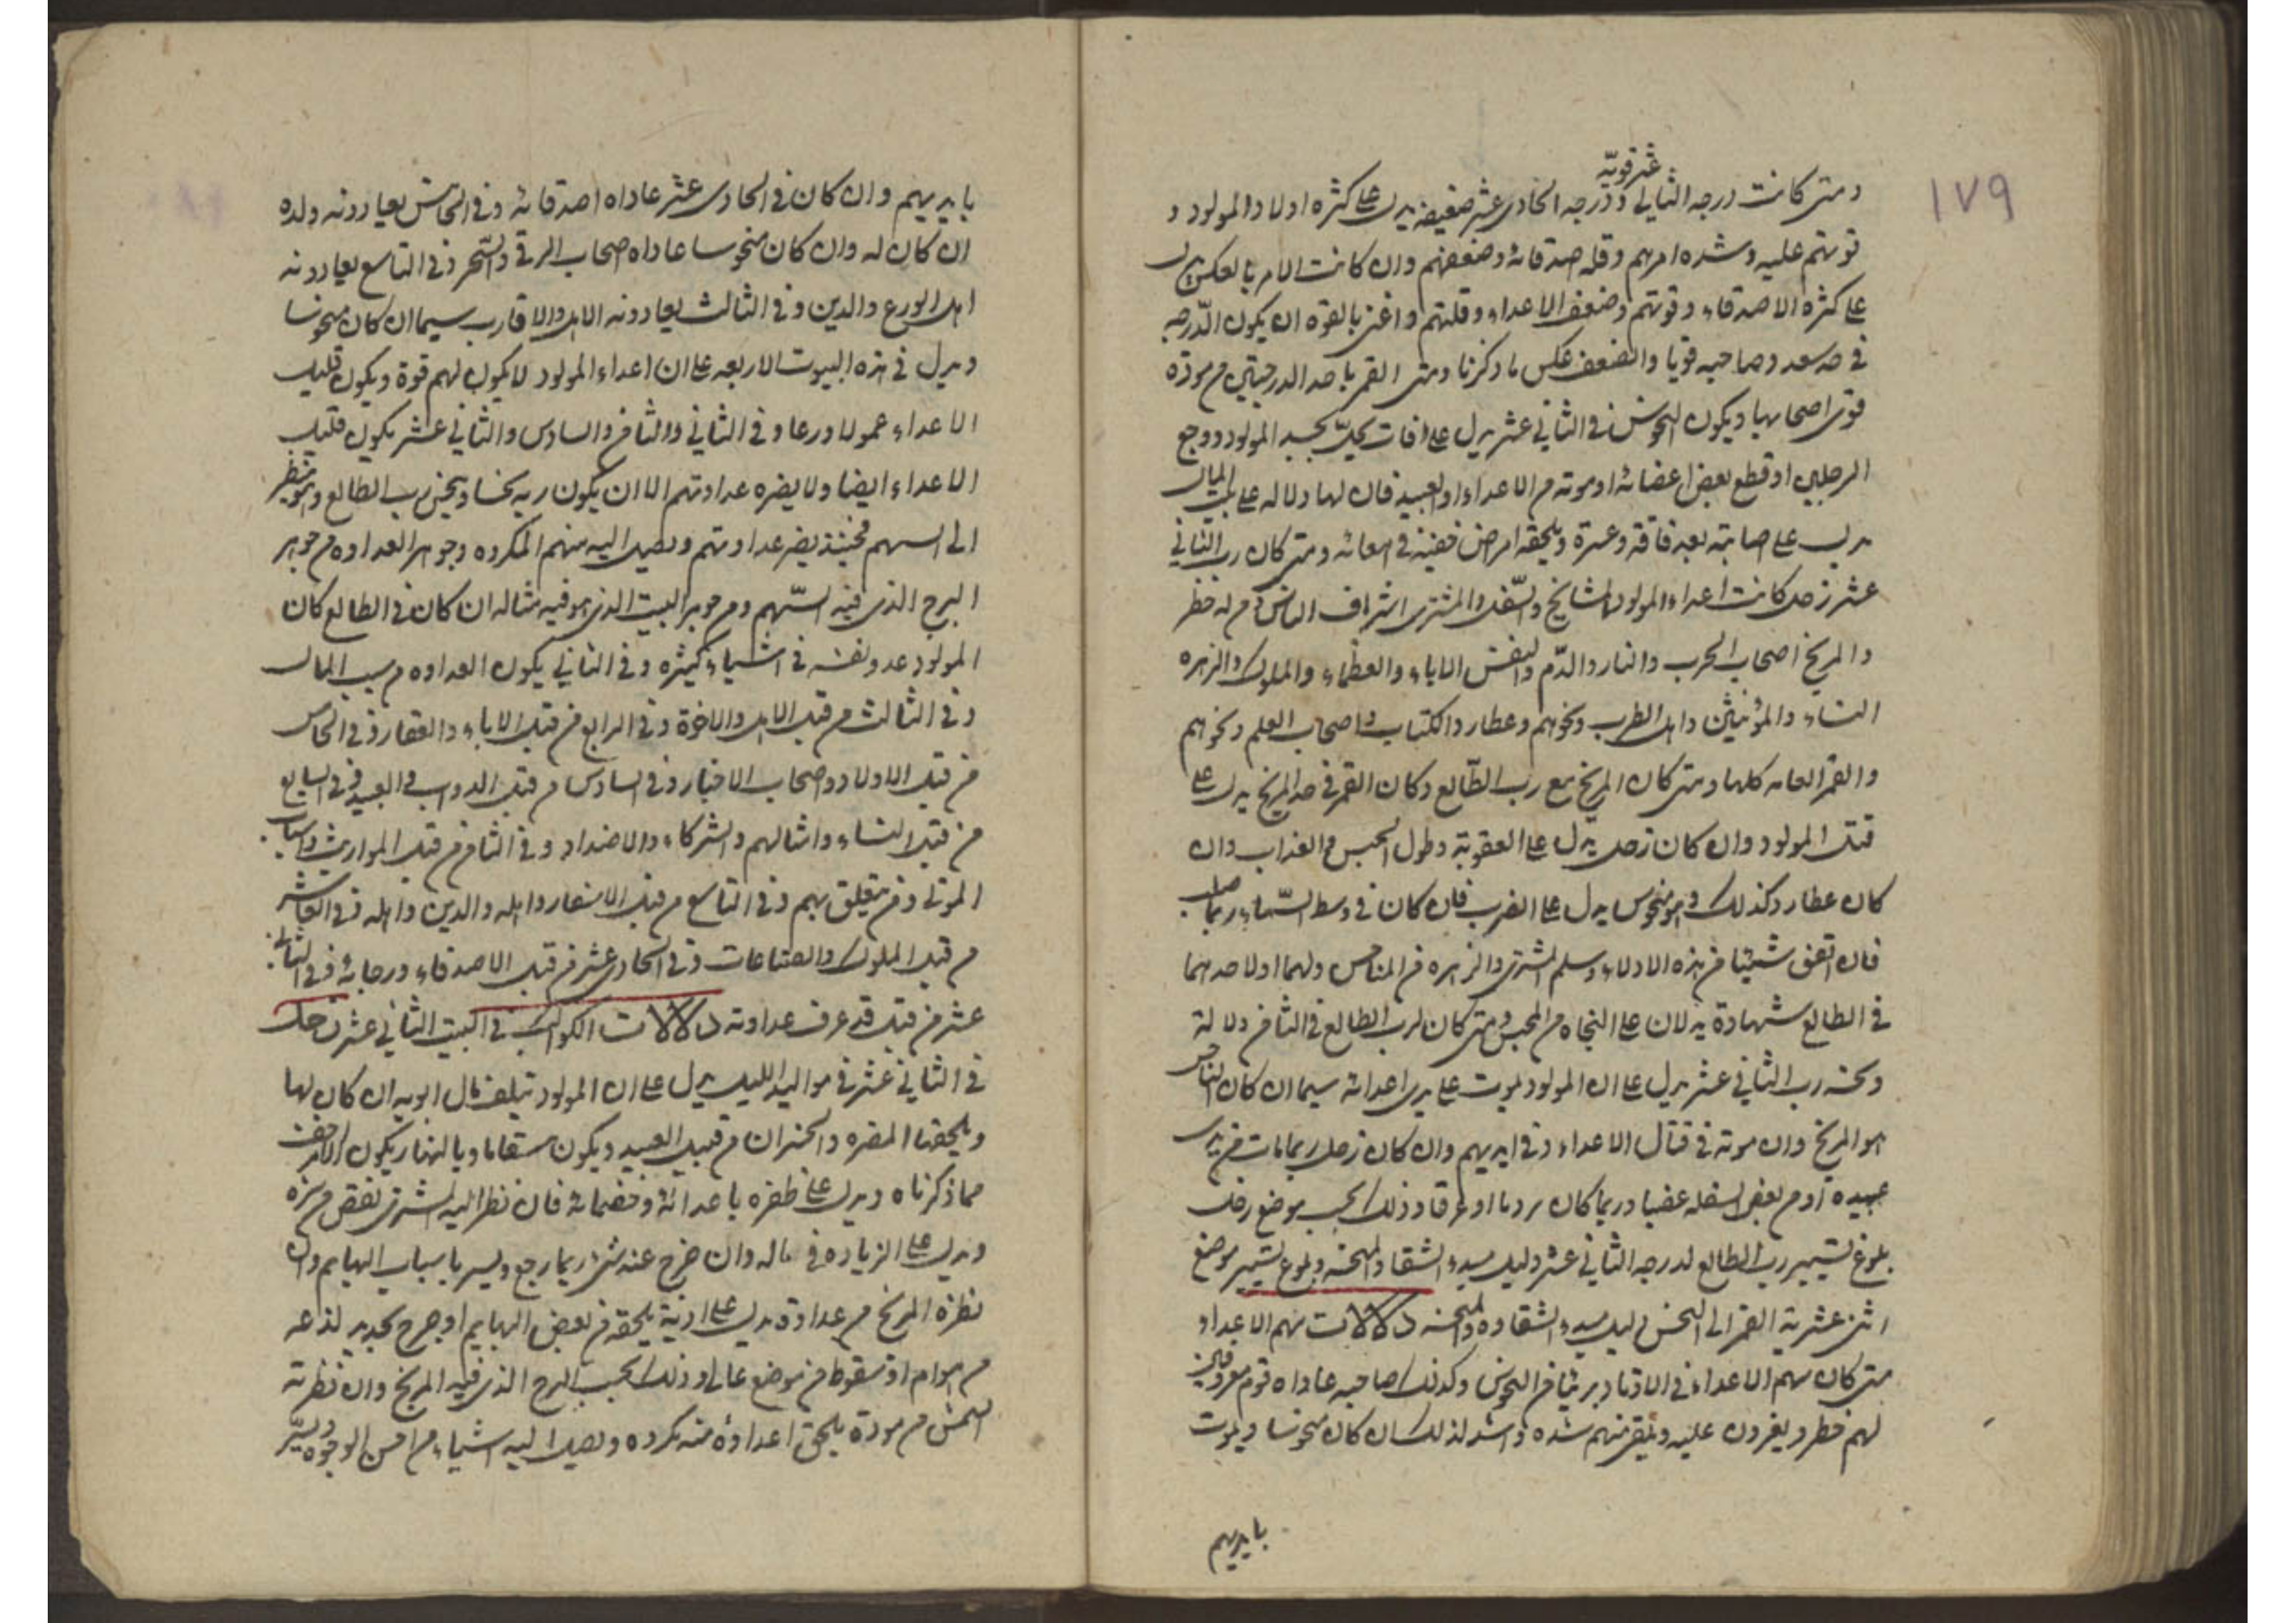 ١٧٩
غير قوية
ومتى كانت درجه الثانى ودرجه الحادى عشر ضعيفه يدل على كثره اولاد المولود و
قوتهم عليه وشده امرهم وقله صدقائه وضعفهم وان كانت الامر بالعكس يدل
على كثره الاصدقاء وقوتهم وضعف الاعداء وقلتهم واعنى بالقوه ان يكون الدّرجه
فى حد سعد وصاحبه قويا والضعف عكس ما ذكرنا ومتى القمر باحد الدرجتين من مودّه
قوى اصحابها ويكون النحوس فى الثانى عشر يدل على افات تحلّ بجسد المولود ووجع
الرجلين او قطع بعض اعضائه او موته من الاعداء او العبيد فان لها دلاله على المال
يدل على اصابته بعد فاقه وعسرة ويلحقه امراض خفية فى امعائه ومتى كان رب الثانى
عشر زحل كانت اعداء المولود المشايخ والسّفل والمشترى اشراف الناس ومن له خطر
والمريخ اصحاب الحرب والنار والدّم والشمس الاباء والعظماء والملوك والزهره
النساء والمؤنثين واهل الطرب ونحوهم وعطارد الكتاب واصحاب العلم ونحوهم
والقمر العامه كلها ومتى كان المريخ مع رب الطّالع وكان القمر فى حد المريخ يدل على
قتل المولود وان كان زحل يدل على العقوبة وطول الحبس والعذاب وان
كان عطارد كذلك وهو منحوس يدل على الضرب فان كان فى وسط السّماء ربما صلب
فان اتفق شيئا من هذه الادلاء وسلم المشترى والزهره من المناحس ولهما او لاحدهما
فى الطالع شهادة يدلان على النجاه من الحبس ومتى كان لرب الطالع فى الثامن دلالة
ونحسه رب الثانى عشر يدل على ان المولود يموت على يدى اعدائه سيما ان كان الناحس
هو المريخ وان موته فى قتال الاعداء وفى ايديهم وان كان زحل ربما مات من يدى
عبيده او من بعض السفله غضبا وربما كان بردما او غرقا وذلك بحسب موضع زحل
بلوغ تسيير رب الطالع لدرجه الثانى عشر دليل مبدء الشقاء والمحنه وبلوغ تسيير موضع
اثنى عشرية القمر الى النحس دليل مبدء الشقاوه والمحنه دلالات سهم الاعداء
متى كان سهم الاعداء فى الاوتاد بريئا من النحوس وكذلك صاحبه عاداه قوم معروفين
لهم خطر ويغرون عليه ويلقى منهم شده واشد لذلك ان كان منحوسا ويموت
بايديهم
بايديهم وان كان فى الحادى عشر عاداه اصدقائه وفى الخامس يعادونه ولده
ان كان له وان كان منحوسا عاداه اصحاب الرقى والسّحر وفى التاسع يعادونه
اهل الورع والدين وفى الثالث يعادونه الاهل والاقارب سيما ان كان منحوسا
ويدل فى هذه البيوت الاربعه على ان اعداء المولود لا يكون لهم قوة ويكون قليل
الاعداء حمولا ورعا وفى الثانى والثامن والسادس والثانى عشر يكون قليل
الاعداء ايضا ولا يضره عداوتهم الا ان يكون ربه نحسا وينحس رب الطالع وهو ينظر
الى السهم فحينئذ يضر عداوتهم ويصل اليه منهم المكروه وجوهر العداوه من جوهر
البرج الذى فيه السّهم ومن جوهر البيت الذى هو فيه مثاله ان كان فى الطالع كان
المولود عدو نفسه فى اشياء كثيره وفى الثانى يكون العداوه من سبب المال
وفى الثالث من قبل الاهل والاخوة وفى الرابع من قبل الاباء والعقار وفى الخامس
من قبل الاولاد واصحاب الاخبار وفى السادس من قبل الدواب والعبيد وفى السابع
من قبل النساء وامثالهم والشركاء والاضداد وفى الثامن من قبل المواريث واسباب
الموتى ومن يتعلق بهم وفى التاسع من قبل الاسفار واهله والدين واهله وفى العاشر
من قبل الملوك والصناعات وفى الحادى عشر من قبل الاصدقاء ورجائه وفى الثانى
عشر من قبل قد عرف عداوته دلالات الكواكب فى البيت الثانى عشر زحل
فى الثانى عشر فى مواليد الليل يدل على ان المولود يتلف مال ابويه ان كان لها
ويلحقها المضره والخسران من قبل العبيد ويكون سقاما وبالنهار يكون الامر اخف
مما ذكرناه ويدل على ظفره باعدائه وخصمائه فان نظر اليه المشترى نقص من هذه
ويدل على الزياده فى ماله وان خرج عنه شئ ربما رجع ويسر باسباب البهايم وان
نظره المريخ من عداوة يدل على اذية يلحقه من بعض البهايم او جرح بحديد لذعه
من هوام او سقوط من موضع عال وذلك بحسب البرج الذى فيه المريخ وان نظرته
الشمس من مودة يلحق اعداؤه منه مكروه ويصل اليه اشياء من احسن الوجوه ويسرّ